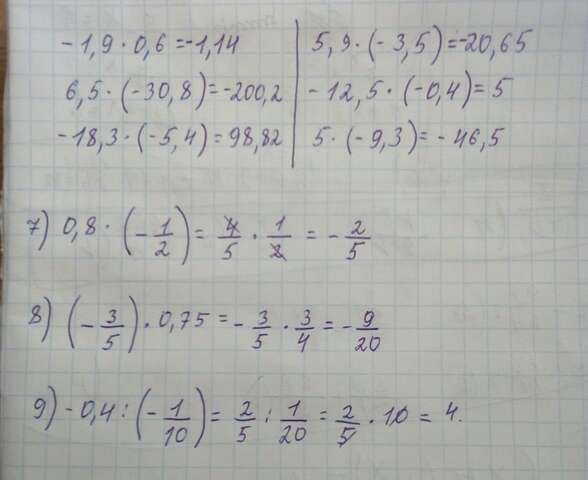 -1,9 · 0,6 = -1,14
6,5 · (-30,8) = -200,2
-18,3 · (-5,4) = 98,82
5,9 · (-3,5) = -20,65
-12,5 · (-0,4) = 5
5 · (-9,3) = -46,5
7) 0,8 · (-1/2) = 4/5 · 1/2 = -2/5
8) (-3/5) · 0,75 = -3/5 · 3/4 = -9/20
9) -0,4 : (-1/10) = 2/5 : 1/20 = 2/5 · 10 = 4.